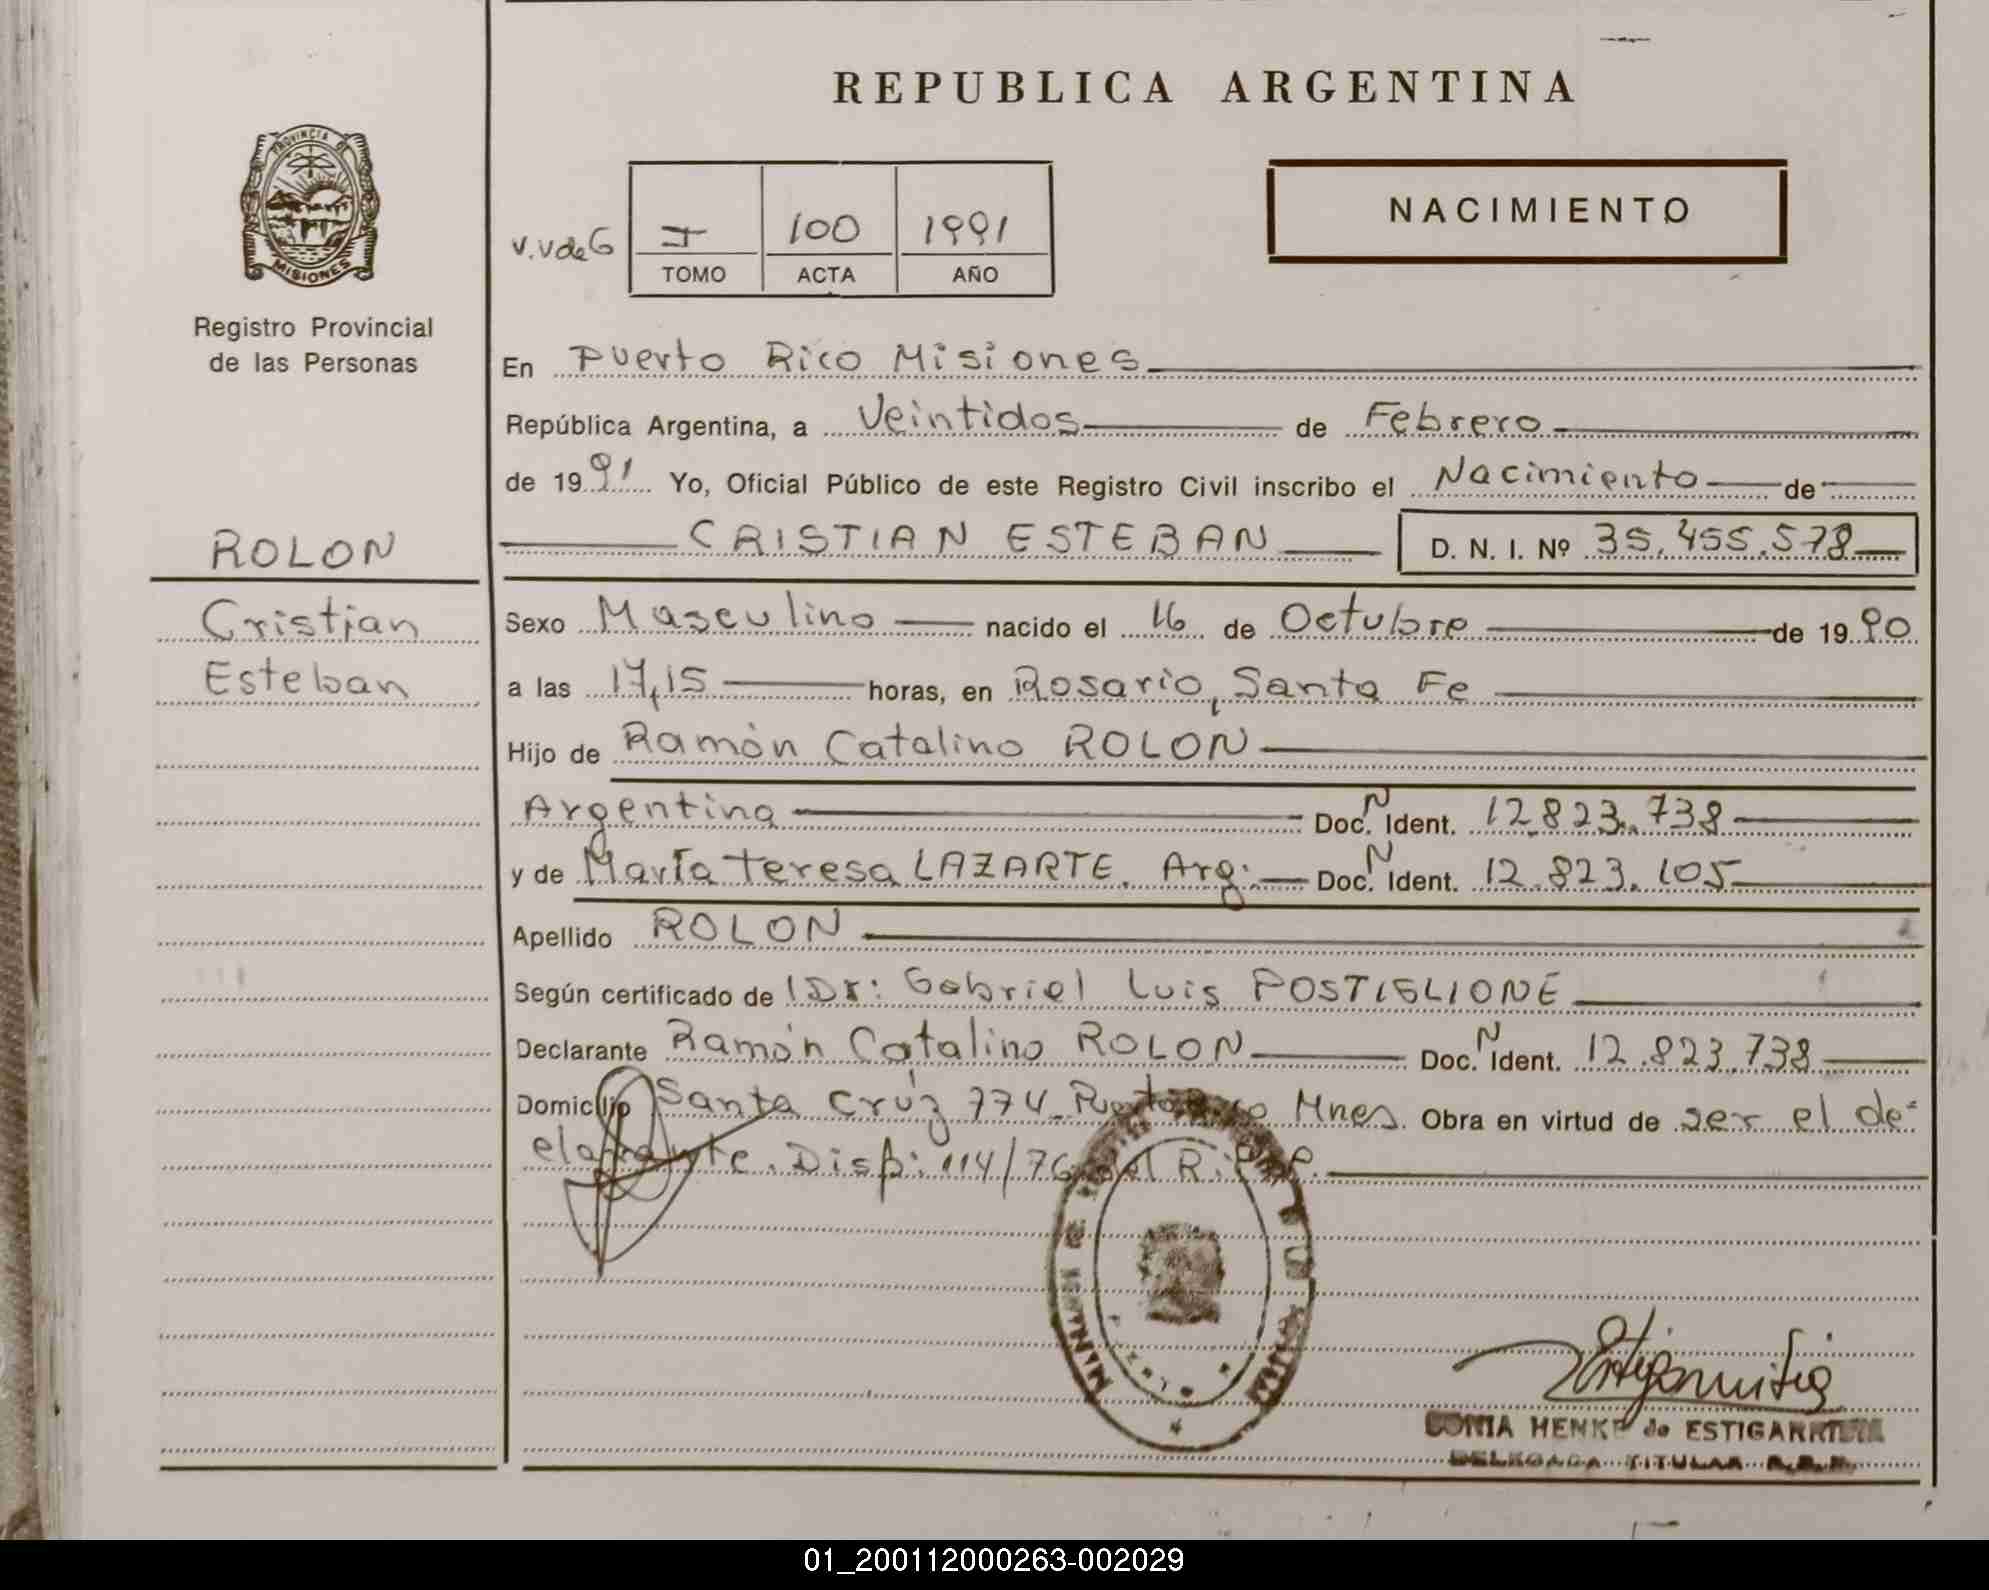 REPUBLICA ARGENTINA
PROVINCIA DE
MISIONES
Registro Provincial
de las Personas
V.VdeG
I 100 1991
TOMO ACTA AÑO
NACIMIENTO
En Puerto Rico Misiones
República Argentina, a Veintidos de Febrero
de 1991 Yo, Oficial Público de este Registro Civil inscribo el Nacimiento de
CRISTIAN ESTEBAN D. N. I. Nº 35.455.578
ROLON
Cristian
Esteban
Sexo Masculino nacido el 16 de Octubre de 1990
a las 17,15 horas, en Rosario, Santa Fe
Hijo de Ramón Catalino ROLON
Argentina Doc. N Ident. 12.823.738
y de María Teresa LAZARTE. Arg: Doc. N Ident. 12.823.105
Apellido ROLON
Según certificado de Dr: Gabriel Luis POSTIGLIONE
Declarante Ramón Catalino ROLON Doc. N Ident. 12.823.738
Domicilio Santa Cruz 774 Puerto Rico Mnes. Obra en virtud de ser el de-
clarante. Disp: 114/76 del R.P.
SONIA HENKE de ESTIGARRIBIA
DELEGADA TITULAR R.P.P.
01_200112000263-002029